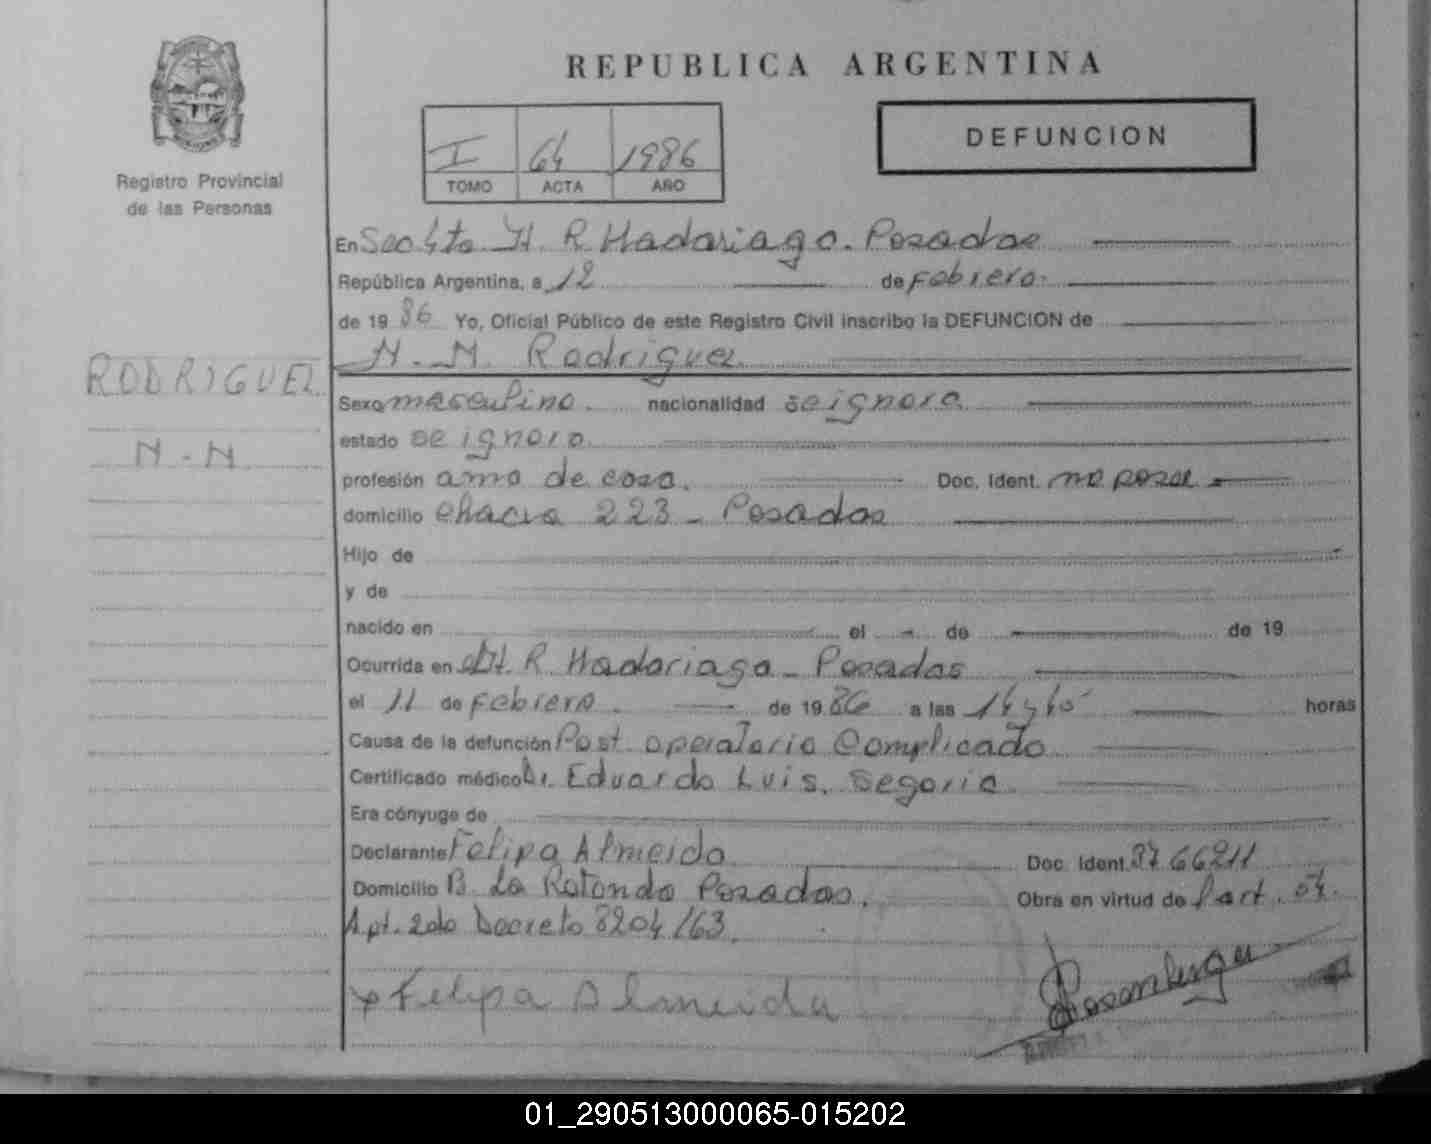 REPUBLICA ARGENTINA
I 64 1986
TOMO ACTA AÑO
DEFUNCION
Registro Provincial
de las Personas
RODRIGUEZ
N.N
En Sec 4ta H. R Madariaga. Posadas
República Argentina, a 12 de febrero.
de 19 86 Yo, Oficial Público de este Registro Civil inscribo la DEFUNCION de
N. N. Rodriguez
Sexo masculino. nacionalidad se ignora
estado se ignora
profesión ama de casa. Doc. Ident. no posee
domicilio chacra 223 - Posadas
Hijo de
y de
nacido en el - de de 19
Ocurrida en H. R. Madariaga - Posadas
el 11 de febrero. de 19 86 a las horas
Causa de la defunción Post operatorio Complicado
Certificado médico Dr. Eduardo Luis. Segovia
Era cónyuge de
Declarante Felipa Almeida Doc. Ident. 3766211
Domicilio B. La Rotonda Posadas. Obra en virtud de
Apt. 2do Decreto 8204/63.
x Felipa Almeida
01_290513000065-015202